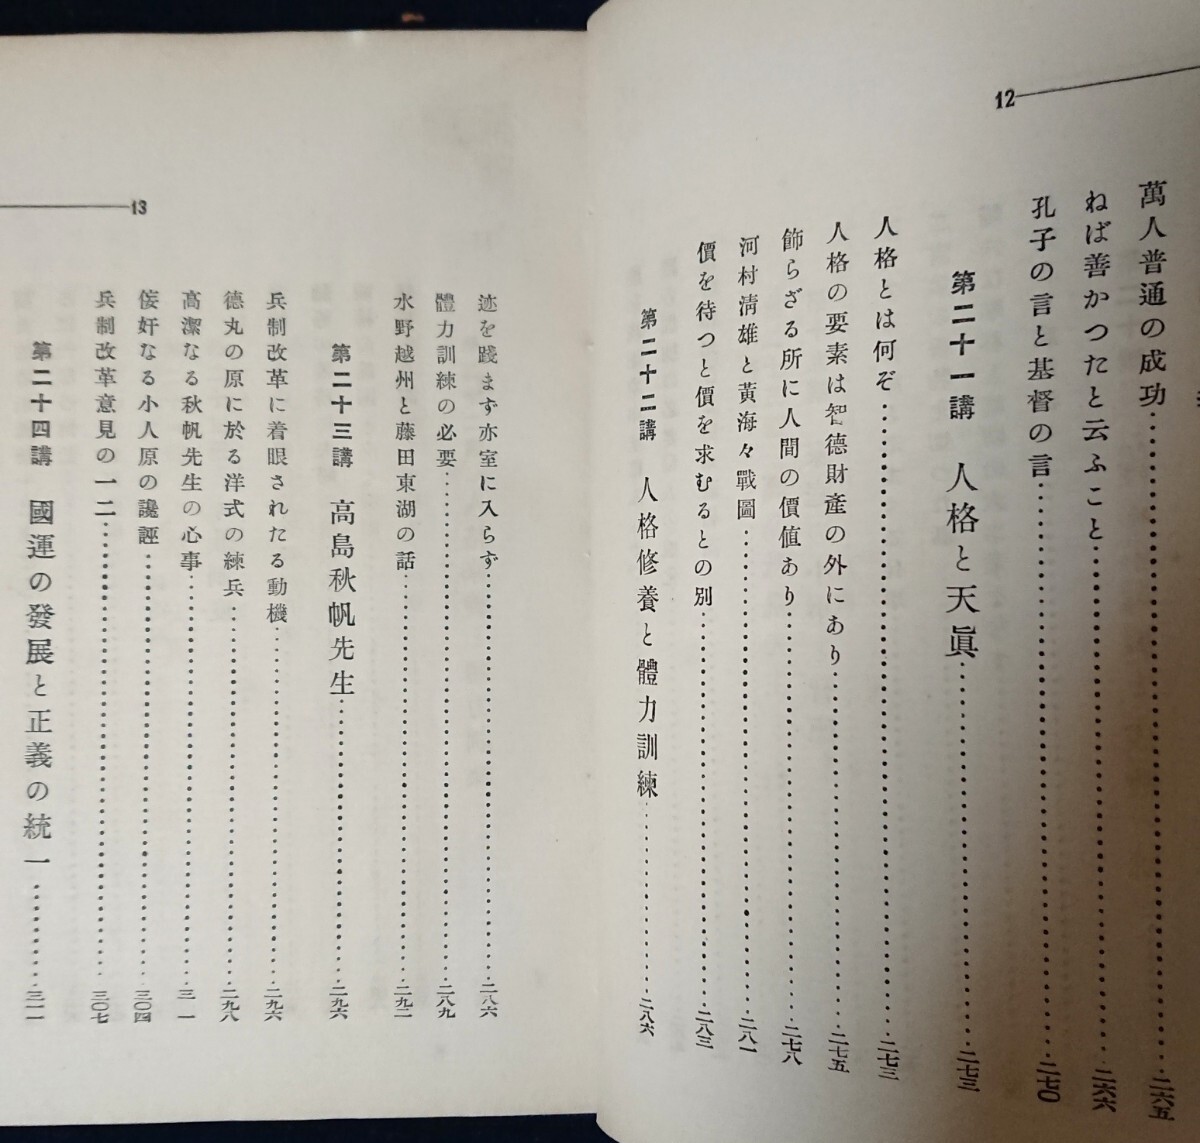 12
萬人普通の成功……………二六五
ねば善かつたと云ふこと……………二六六
孔子の言と基督の言……………二七〇
第二十一講 人格と天眞……………二七三
人格とは何ぞ……………二七三
人格の要素は智德財產の外にあり……………二七五
飾らざる所に人間の價値あり……………二七八
河村淸雄と黃海々戰圖……………二八一
價を待つと價を求むるとの別……………二八三
第二十二講 人格修養と體力訓練……………二八六
13
迹を踐まず亦室に入らず……………二八六
體力訓練の必要……………二八九
水野越州と藤田東湖の話……………二九二
第二十三講 高島秋帆先生……………二九六
兵制改革に着眼されたる動機……………二九六
德丸の原に於る洋式の練兵……………二九八
高潔なる秋帆先生の心事……………三一一
侫奸なる小人原の讒誣……………三〇四
兵制改革意見の一二……………三〇七
第二十四講 國運の發展と正義の統一……………三一一